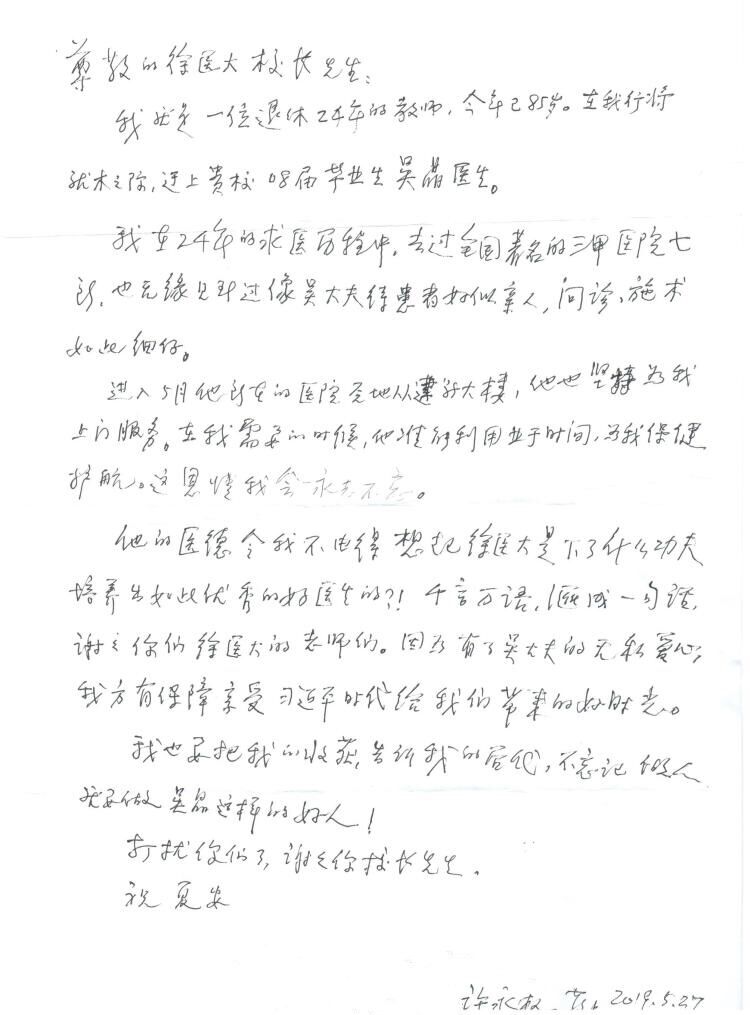 尊敬的徐医大校长先生：
我就是一位退休24年的教师，今年已85岁。在我行将
就木之际，迂上贵校08届毕业生吴晶医生。
我在24年的求医历程中，去过全国著名的三甲医院七
所，也无缘见到过像吴大夫待患者好似亲人，问诊、施术
如此细仔。
进入5月他所在的医院异地从建新大楼，他也坚持为我
上门服务。在我需要的时候，他准能利用业于时间，为我保健
护航。这恩情我会永志不忘。
他的医德令我不由得想起徐医大是下了什么功夫
培养出如此优秀的好医生的？！千言万语，汇成一句话，
谢谢你们徐医大的老师们。因为有了吴大夫的无私爱心，
我方有保障享受习近平时代给我们带来的好时光。
我也要把我的收获，告诉我的后代，不忘记做人
就要做吴晶这样的好人！
打扰你们了，谢谢你校长先生。
祝 夏安
许永权 2019.5.27